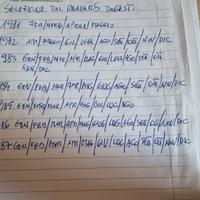 SELEZIONE DAI QUADERNI INGESTI
1981 FEB/MARZO/APRILE/MAGGIO
1982 APR/MAGG/GIU/LUGL/AGO/SET/OTT/NOV/DIC
1983 GEN/FEB/MAR/APR/MAG/GIU/LUGL/AGO/SET/OTT
NOV/DIC
84 GEN/FEB/MAR/APR/MAG/GIUG/AGO/SET/OTT/NOV/DIC
985 GEN/FEB/MAR/APR/MAG/GIU/LUG/AGO
86 GEN/FEB/MAR/APR/MAG/GIU/LUG/AGO/SET/OTT/NOV/DIC
87 GEN/FEB/MAR/APR/MAG/GIU/LUG/AGO/SET/OTT/NOV/DIC